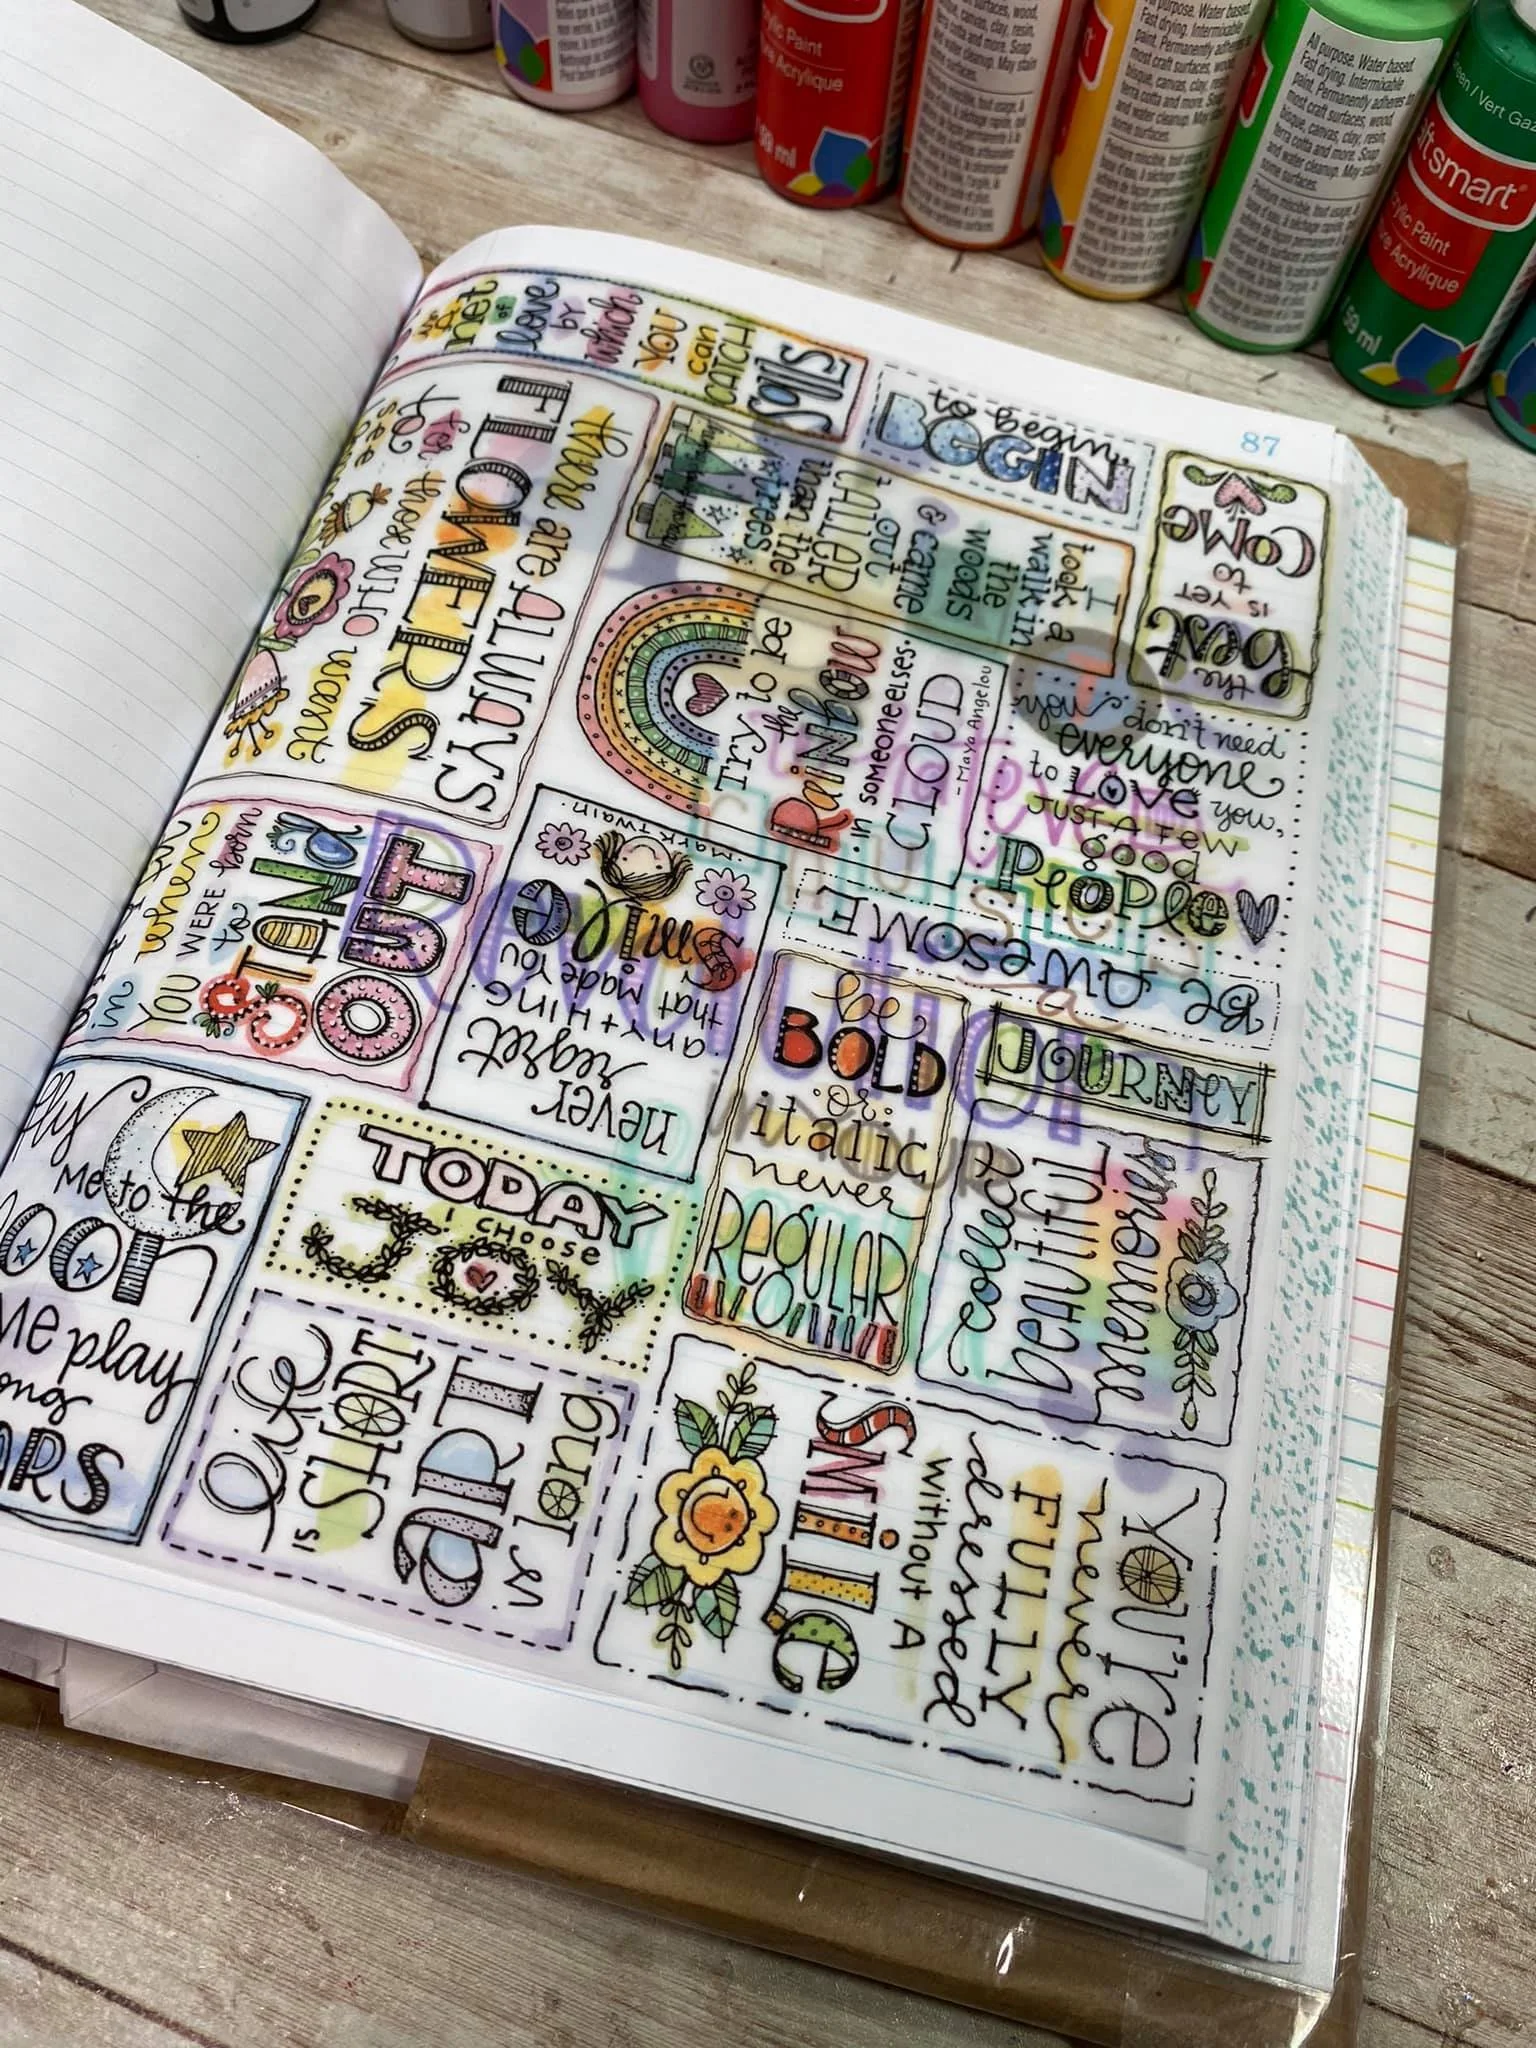 All purpose. Water based.
Fast drying. Intermixable
paint. Permanently adheres to
most craft surfaces, wood,
bisque, canvas, clay, resin,
terra cotta and more. Soap
and water cleanup. May stain
some surfaces.
Acrylic Paint
Acrylique
59 ml
smart
Acrylic Paint
Acrylique
59 ml
87
net
of
love
by
which
YOU
can
CATCH
SOULS
to begin,
BEGIN
the
best
IS YET
to
COME
I
took a
walk in
the
woods
& came
out
TALLER
than the
trees
there are
ALWAYS
FLOWERS
for those WHO want
to
see
Try to be
the
RAINBOW
in someone else's
CLOUD
- Maya Angelou
you don't need
everyone
to LOVE you,
JUST A FEW
good
People
BE AWESOME
when
YOU WERE born
to
STAND
OUT
never
regret
anything
that made you
Smile
·Mark Twain·
be
BOLD
or
italic
never
REGULAR
JOURNEY
collect
beautiful
moments
fly
ME to the
moon
ME play
STARS
TODAY
I CHOOSE
JOY
life
IS
SHORT
ART
is
long
YOU'RE
never
FULLY
dressed
without A
SMILE